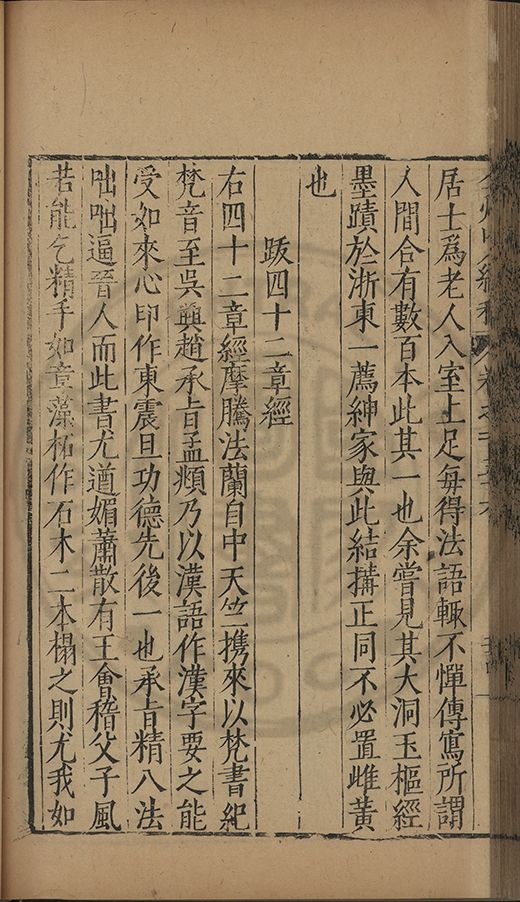 居士爲老人入室上足每得法語輒不憚傳寫所謂
人間合有數百本此其一也余嘗見其大洞玉樞經
墨蹟於浙東一薦紳家與此結搆正同不必置雌黃
也
跋四十二章經
右四十二章經摩騰法蘭自中天竺攜來以梵書紀
梵音至吳興趙承旨孟頫乃以漢語作漢字要之能
受如來心印作東震旦功德先後一也承旨精八法
咄咄逼晉人而此書尤遒媚蕭散有王會稽父子風
若能乞精手如章藻柘作石木二本榻之則尤我如